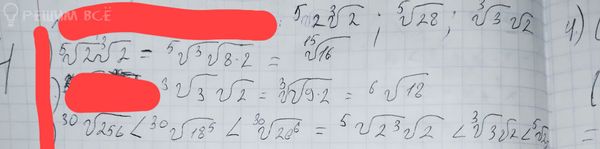 РЕШИМ ВСЁ
⁵√(2∛2) ; ⁵√28 ; ∛(3√2) 4.)
⁵√(2∛2) = ⁵√(∛(8·2)) = ¹⁵√16
∛(3√2) = ∛(√(9·2)) = ⁶√18
³⁰√256 < ³⁰√(18⁵) < ³⁰√(28⁶) = ⁵√(2∛2) < ∛(3√2) < ⁵√28